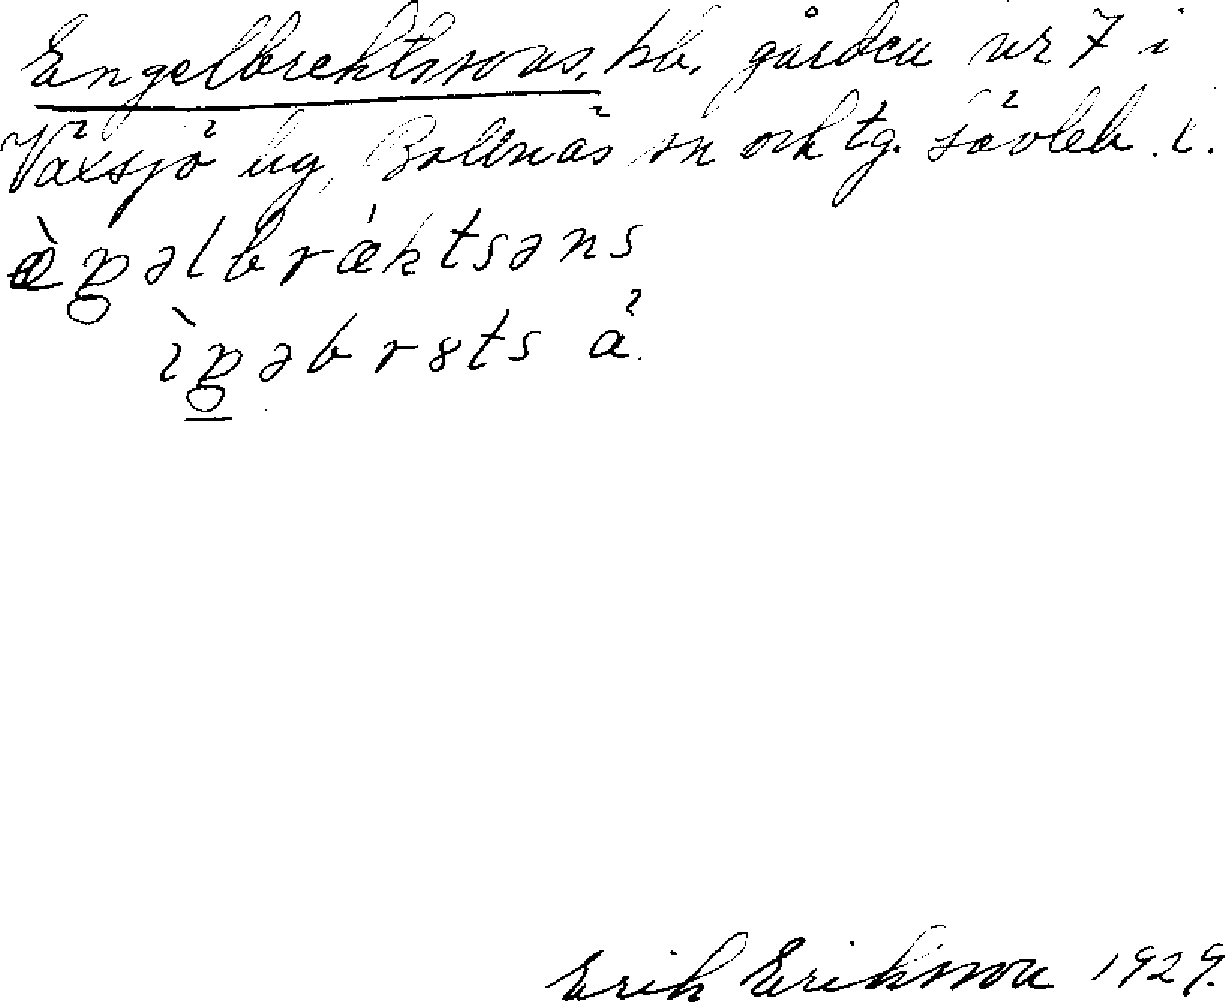 Engelbrektssons, hb. gården nr 7 i
Växsjö by, Bollnäs sn och tg. Gävleb. l.
æ̀ŋəlbrǽktsəns
ìŋəbrsts ä.
Erik Eriksson 1929.